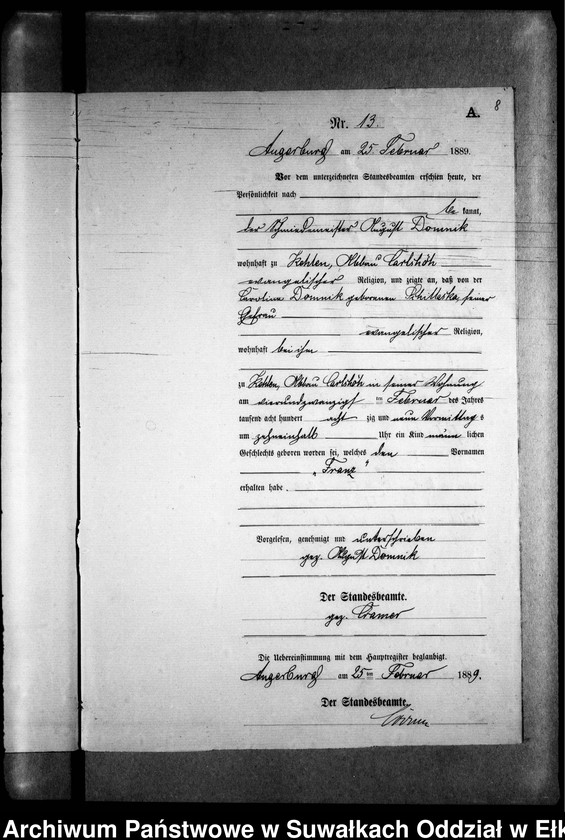 8
A.
Nr. 13.
Angerburg am 25. Februar 1889.
Vor dem unterzeichneten Standesbeamten erschien heute, der
Persönlichkeit nach
be kannt,
der Schmiedemeister August Domnik
wohnhaft zu Kehlen, Abbau Carlshöh
evangelischer Religion, und zeigte an, daß von der
Carolina Domnik geborenen seiner
Ehefrau
evangelischer Religion,
wohnhaft bei ihm
zu Kehlen, Abbau Carlshöh in seiner Wohnung
am vierundzwanzigst en Februar des Jahres
tausend acht hundert acht zig und neun Vormittags
um zehneinhalb Uhr ein Kind männ lichen
Geschlechts geboren worden sei, welches den Vornamen
„Franz"
erhalten habe.
Vorgelesen, genehmigt und unterschrieben
gez. August Domnik
Der Standesbeamte.
gez. Cramer
Die Uebereinstimmung mit dem Hauptregister beglaubigt.
Angerburg am 25 ten Februar 1889.
Der Standesbeamte.
Archiwum Państwowe w Suwałkach Oddział w Ełk